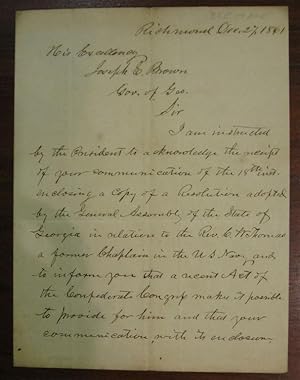 Richmond Dec. 27, 1861
His Excellency
Joseph E. Brown
Gov. of Geo.
Sir
I am instructed
by the President to acknowledge the receipt
of your communication of the 18th inst.
enclosing a copy of a Resolution adopted
by the General Assembly of the State of
Georgia in relation to the Rev. C. W. Thomas
a former Chaplain in the U S Navy, and
to inform you that a recent Act of
the Confederate Congress makes it possible
to provide for him and that your
communication with its enclosure